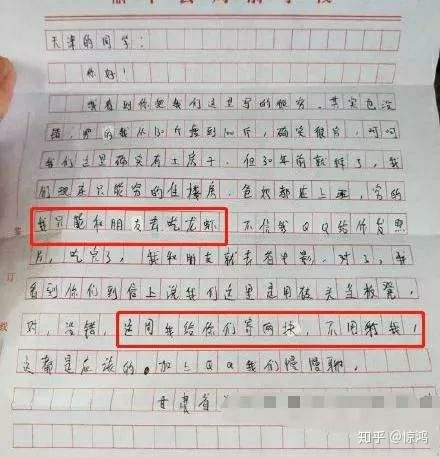 天津的同学：
你好！
我看到你把我们这里写的很穷，其实也没
错，穷的我从130斤瘦到100斤，确实很穷，呵呵
我们这里确实有土房子，但30年前就拆了，我
们现在只能穷的住楼房，色都在上，穷的
我只能和朋友去吃龙虾，不信我QQ给你发照
片，吃完了，我和朋友就去看电影，对了，我
看到你们到信上说我们这里是用砖头当板凳，
对，没错，这周我给你们寄两块，不用谢我！
这都是应该的，加上QQ我们慢慢聊。
甘肃省
订
线
知乎 @惊鸿